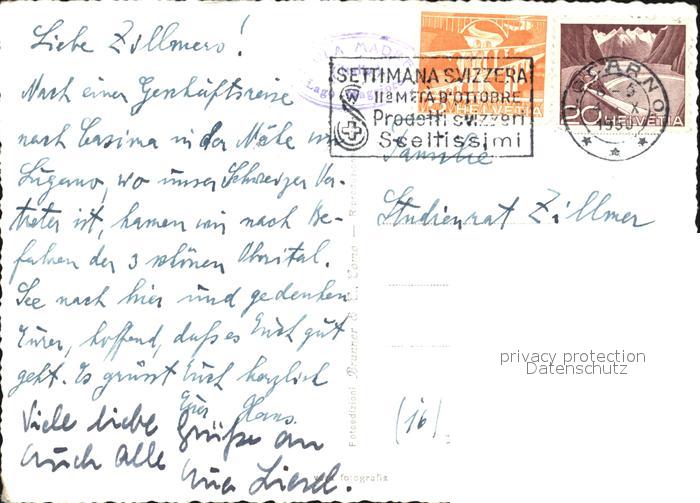 Liebe Zillmers!
Nach einer Geschäftsreise
nach Cassina in der Nähe von
Lugano, wo unser Schweizer Ver-
treter ist, kamen wir nach Be-
fahren der 3 schönen Oberital.
See nach hier und gedenken
Eurer, hoffend, dass es Euch gut
geht. Es grüsst Euch herzlich
Euer Hans.
Viele liebe Grüße an
Euch alle
Eure Liesel.
MADO
Lago Maggiore
SETTIMANA SVIZZERA
IIa METÀ D'OTTOBRE
Prodotti svizzeri
Sceltissimi
HELVETIA
20 HELVETIA
LOCARNO
X
1950
Familie
Studienrat Zillmer
(16)
Fotoedizioni Brunner & C. Como — 
fotografia
privacy protection
Datenschutz